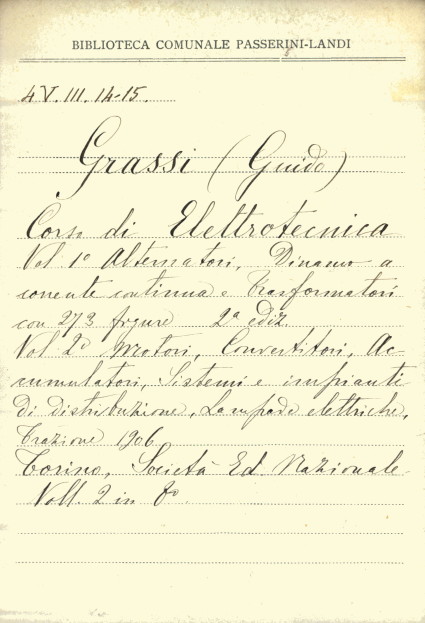 BIBLIOTECA COMUNALE PASSERINI-LANDI
4 V. III. 14-15.
Grassi (Guido)
Corso di Elettrotecnica
Vol 1º Alternatori, Dinamo a
corrente continua e Trasformatori
con 273 figure 2ª ediz.
Vol 2º Motori, Convertitori, Ac-
cumulatori, Sistemi e impianti
di distribuzione, Lampade elettriche,
Trazione 1906
Torino, Società Ed. Nazionale
Voll. 2 in 8º